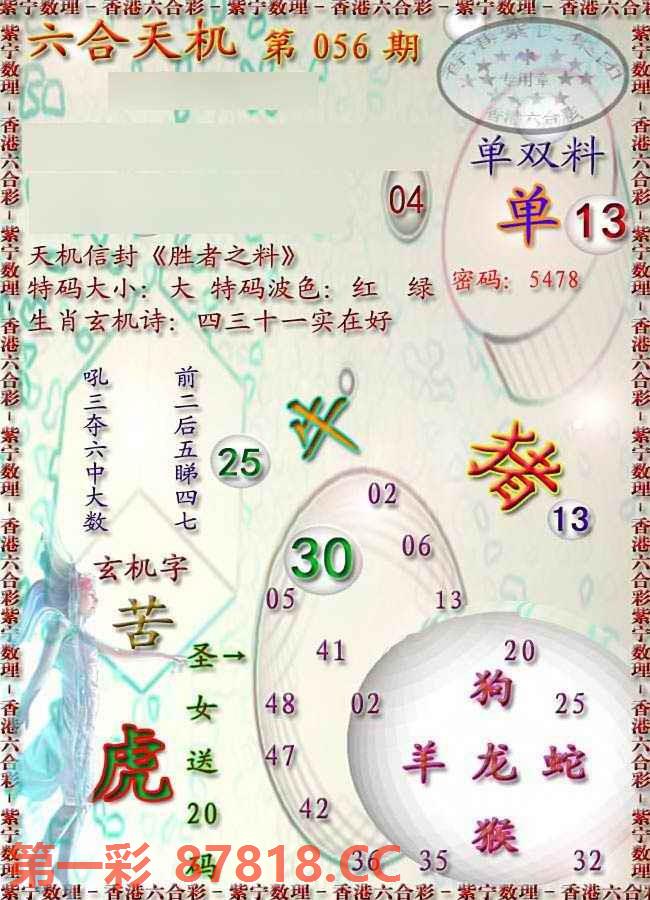 紫宁数理－香港六合彩－紫宁数理－香港六合彩－紫宁数理－香港六合彩
六合天机 第 056 期
专用章
香港六合彩
单双料
单 13
04
天机信封《胜者之料》
特码大小：大 特码波色：红 绿
密码：5478
生肖玄机诗：四三十一实在好
前二后五睇四七
吼三夺六中大数
25
猪
13
玄机字
苦
虎
圣女送20码
→
02
30
06
05
13
41
20
48
02
狗
25
47
羊 龙 蛇
42
猴
36
35
32
第一彩 87818.CC
紫宁数理－香港六合彩－紫宁数理－香港六合彩－紫宁数理－香港六合彩